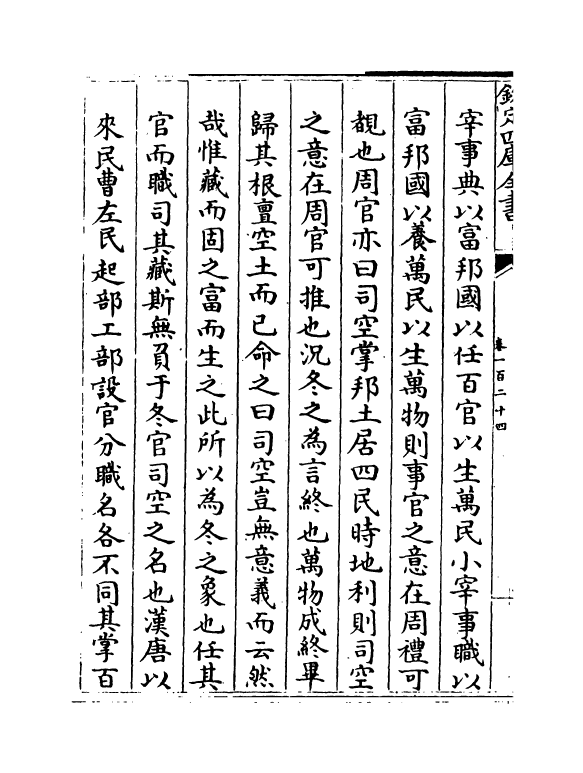 欽定四庫全書
卷一百二十四
宰事典以富邦國以任百官以生萬民小宰事職以
富邦國以養萬民以生萬物則事官之意在周禮可
覩也周官亦曰司空掌邦土居四民時地利則司空
之意在周官可推也况冬之為言終也萬物成終畢
歸其根亶空土而已命之曰司空豈無意義而云然
哉惟藏而固之富而生之此所以為冬之象也任其
官而職司其藏斯無負于冬官司空之名也漢唐以
來民曹左民起部工部設官分職名各不同其掌百